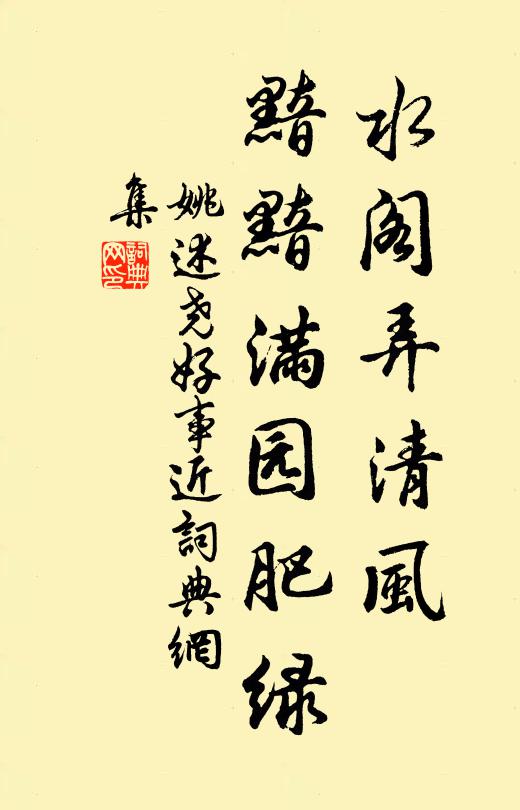 水阁弄清風
黯黯满园肥绿
姚述尧好事近詞典網
集
詞典
网印